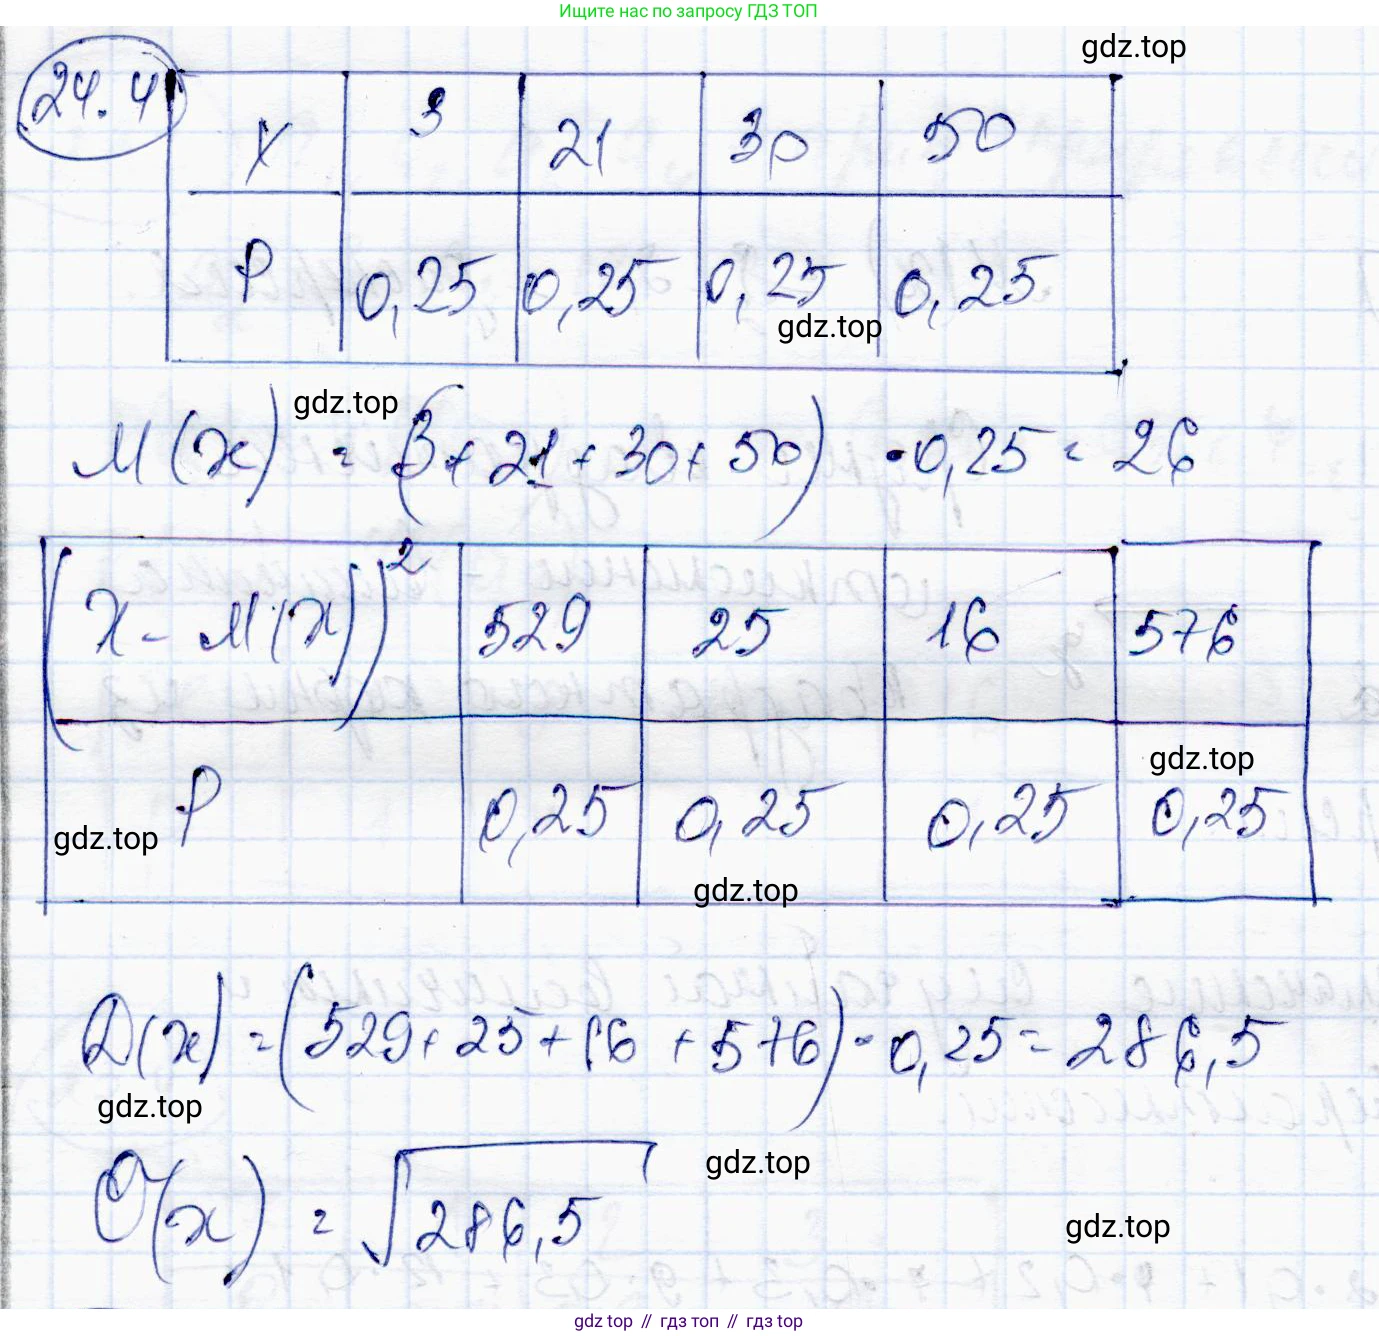 Ищите нас по запросу ГДЗ ТОП
gdz.top
24.4
X 3 21 30 50
P 0,25 0,25 0,25 0,25
gdz.top
gdz.top
M(x) = (3+21+30+50) · 0,25 = 26
(X - M(x))² 529 25 16 576
gdz.top
P 0,25 0,25 0,25 0,25
gdz.top
gdz.top
D(x) = (529+25+16+576) · 0,25 = 286,5
gdz.top
gdz.top
σ(x) = √286,5
gdz.top
gdz top // гдз топ // гдз top